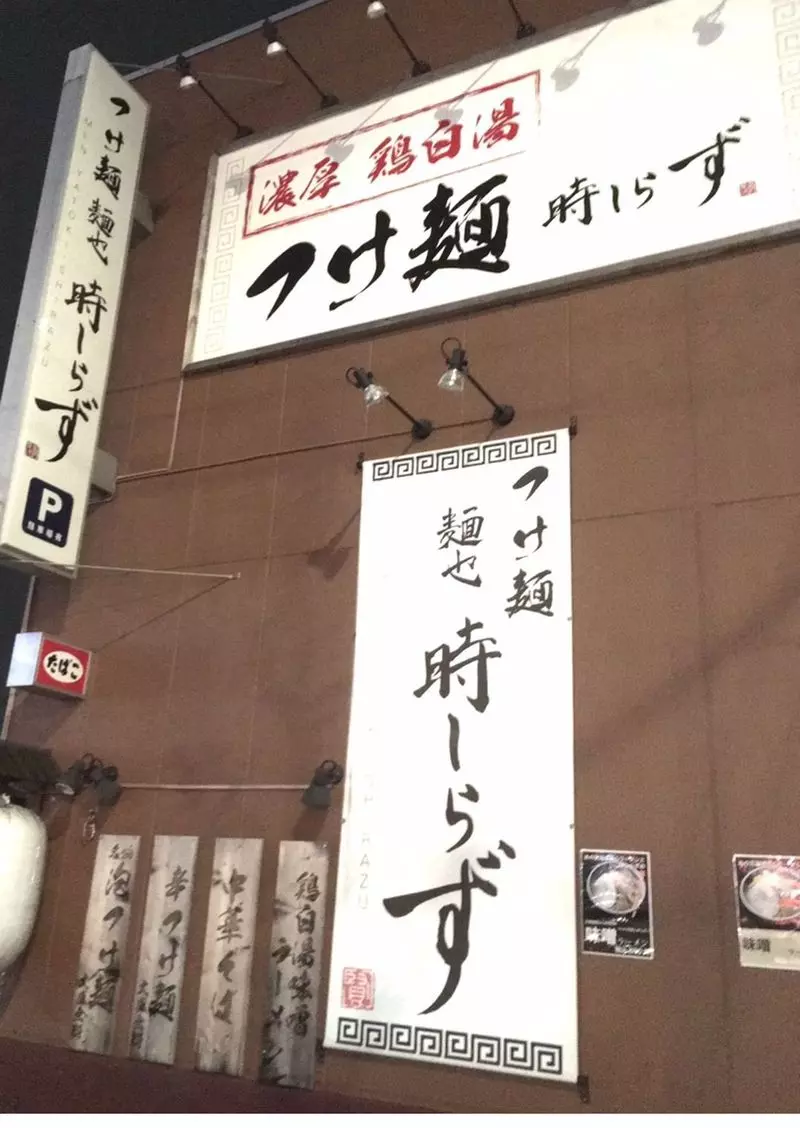 濃厚 鶏白湯
つけ麺 時しらず
つけ麺 麺也 時しらず
MENYA TOKI SHIRAZU
P
たばこ
つけ麺
麺也
時しらず
SHIRAZU
泡つけ麺
辛つけ麺
中華そば
鶏白湯味噌ラーメン
味噌
ラーメン
味噌